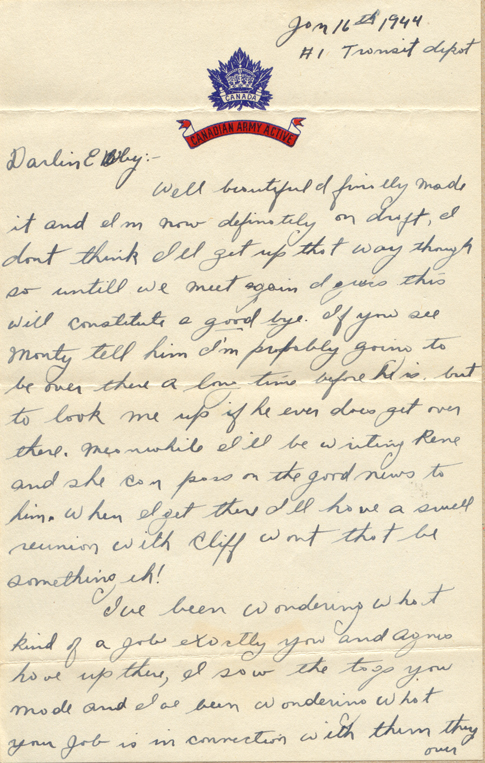 Jan 16th 1944.
#1 Transit depot
CANADA
CANADIAN ARMY ACTIVE
Darlin :-
Well beautiful I finally made
it and I'm now definitely on draft, I
dont think I'll get up that way though
so untill we meet again I guess this
will constitute a good bye. If you see
Monty tell him I'm probably going to
be over there a long time before he is. but
to look me up if he ever does get over
there. Meanwhile I'll be writing Rene
and she can pass on the good news to
him. When I get there I'll have a swell
reunion with Cliff wont that be
something eh!
I've been wondering what
kind of a job exactly you and Agnes
have up there, I saw the tags you
made and I've been wondering what
your job is in connection with them they
over